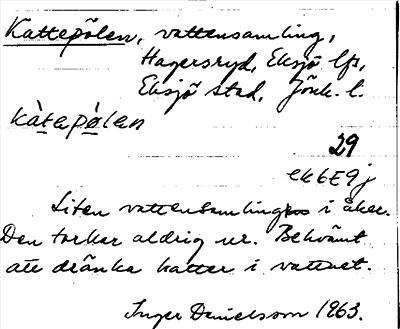 Kattepölen, vattensamling,
Hagersryd, Eksjö lfs,
Eksjö stad, Jönk. l.
kàtepǿlen
29
ek6E9j
Liten vattensamling i åker.
Den torkar aldrig ur. Bekvämt
att dränka katter i vattnet.
Inger Danielsson 1963.